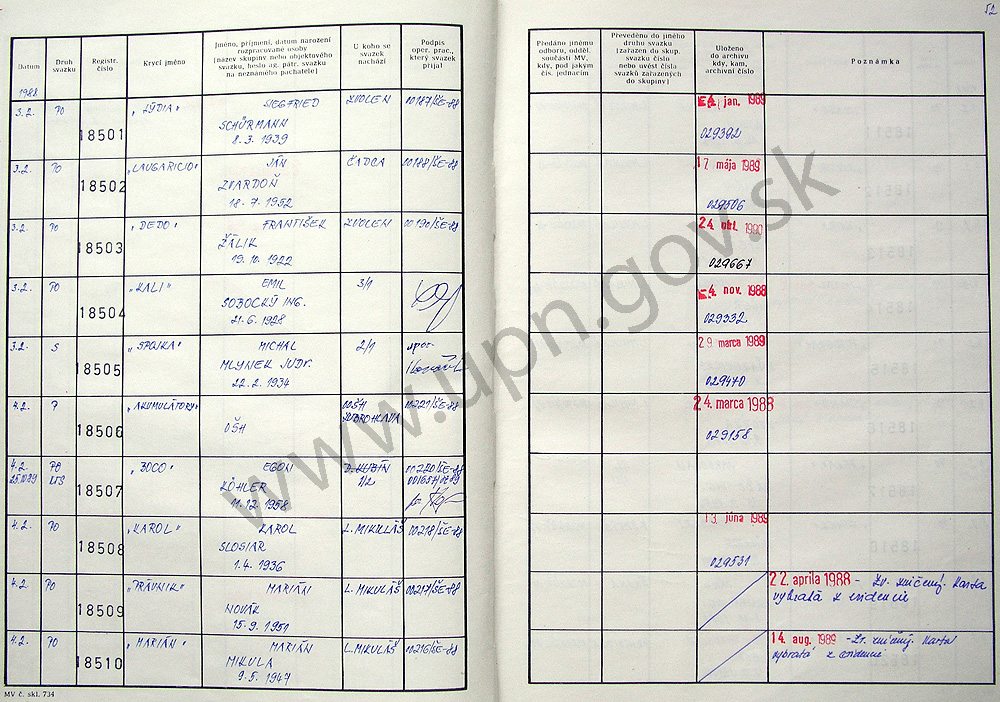 52
Datum
Druh svazku
Registr. číslo
Krycí jméno
Jméno, příjmení, datum narození
rozpracované osoby
[název skupiny nebo objektového
svazku, heslo ag. pátr. svazku
na neznámého pachatele]
U koho se
svazek
nachází
Podpis
oper. prac.,
který svazek
přijal
Předáno jinému
odboru, odděl.
součásti MV,
kdy, pod jakým
čís. jednacím
Převedeno do jiného
druhu svazku
[zařazen do skup.
svazku číslo
nebo uvést čísla
svazků zařazených
do skupiny]
Uloženo
do archivu
kdy, kam,
archivní číslo
Poznámka
1988
3.2. PO 18501 "LÝDIA" SIEGFRIED ZVOLEN 00187/ŠE-88
SCHÜRMANN
8. 3. 1939
jan. 1989
029392
3.2. PO 18502 "LAUGARICIO" JÁN ČADCA 00188/ŠE-88
ZVARDOŇ
18. 7. 1952
17 mája 1989
029506
3.2. PO 18503 "DEDO" FRANTIŠEK ZVOLEN 00190/ŠE-88
ŽÁLIK
19. 10. 1922
24. okt. 1990
029667
3.2. PO 18504 "KALI" EMIL 3/1
SOBOCKÝ ING.
21. 6. 1928
4. nov. 1988
029332
3.2. S 18505 "SPOJKA" MICHAL 2/1
MLYNEK JUDr.
22. 2. 1934
29 marca 1989
029470
4.2. P 18506 "AKUMULÁTORY" 00221/ŠE-88
OŠH
24. marca 1988
029158
4.2. PO 18507 "BOCO" EGON D. KUBÍN 00220/ŠE-88
KÖHLER 1/2
11. 12. 1958
4.2. PO 18508 "KAROL" KAROL L. MIKULÁŠ 00218/ŠE-88
SLOSIAR
1. 4. 1936
13. júna 1989
029531
4.2. PO 18509 "PRÁVNIK" MARIÁN L. MIKULÁŠ 00217/ŠE-88
NOVÁK
15. 9. 1951
22. apríla 1988 - Zv. zničený. Karta
vybratá z evidencie
4.2. PO 18510 "MARIÁN" MARIÁN L. MIKULÁŠ 00216/ŠE-88
MIKULA
9. 5. 1947
14. aug. 1989 - Zv. zničený. Karta
vybratá z evidencie
MV č. skl. 734
www.upn.gov.sk